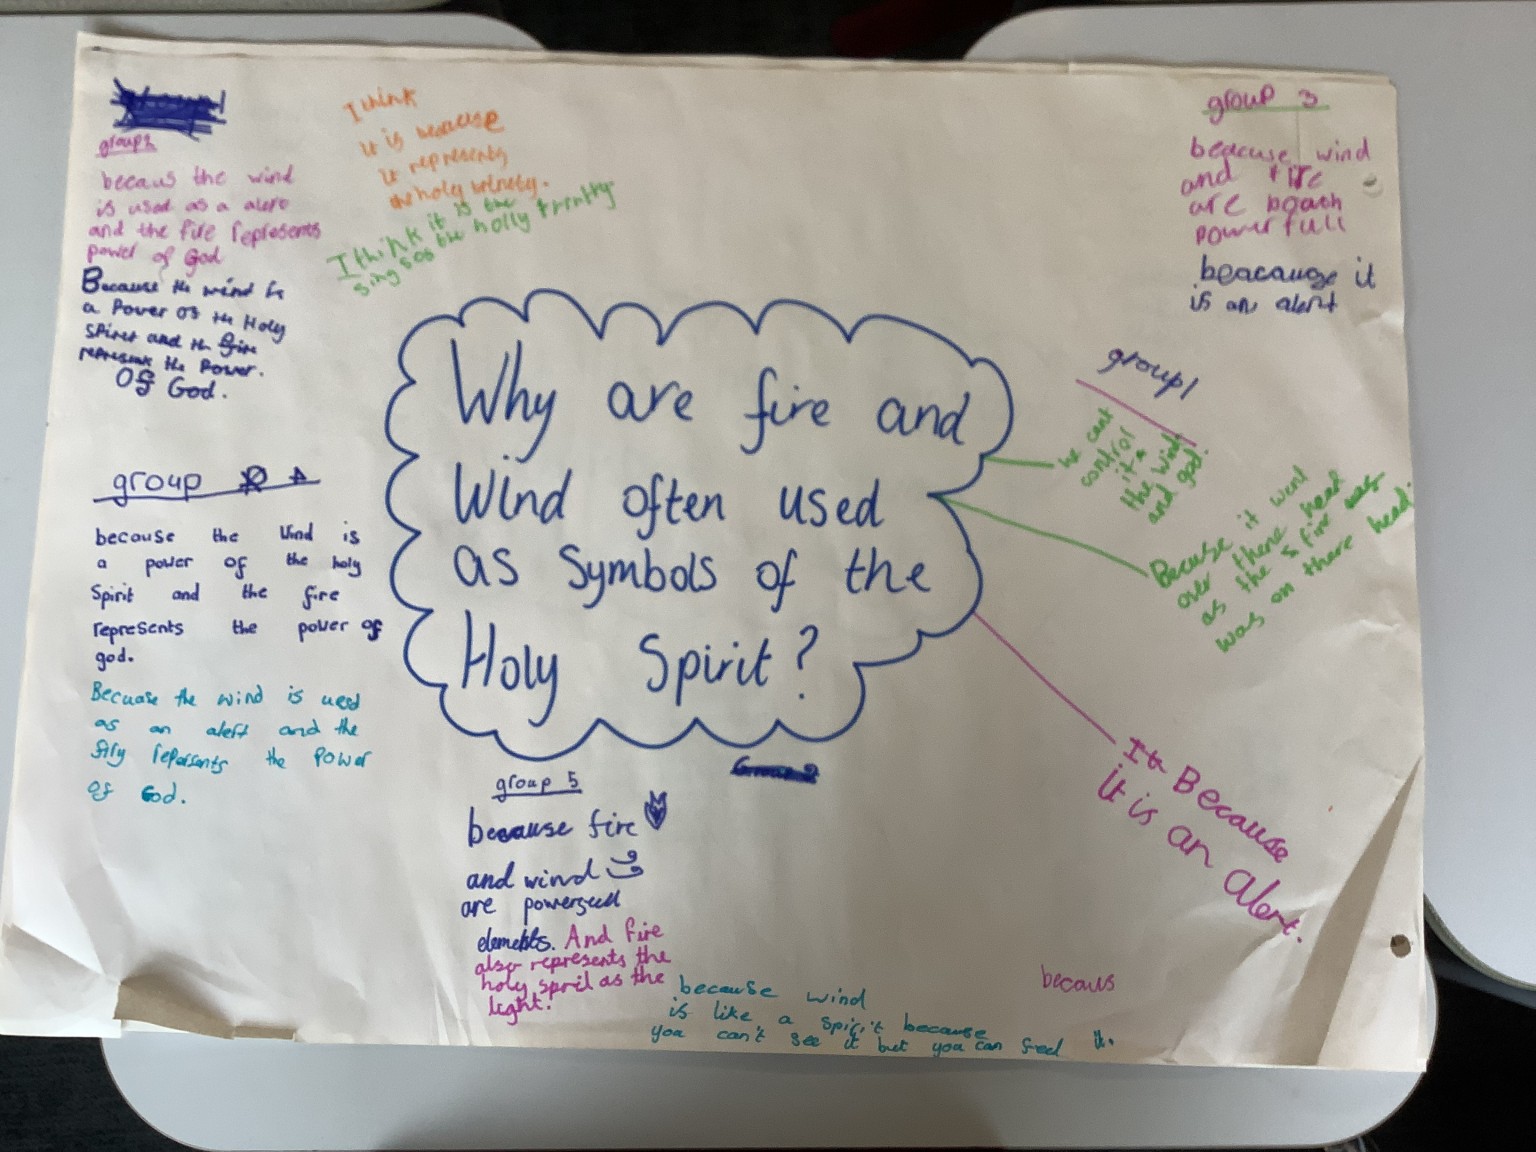 group2
becaus the wind
is used as a alert
and the fire represents
power of God
Because the wind is
a Power of the Holy
spirit and the fire
represent the Power.
Of God.
I think
it is beacuse
it represents
the holy
I think it is the
the holly trinity.
group 3
beacuse wind
and fire
are boath
powerfull
beacauge it
is an alert
Why are fire and
Wind often used
as Symbols of the
Holy Spirit?
group1
we cant
control
it
the wind
and god.
Because it went
over there head
as the fire
was on there head.
It Because
it is an alert.
group 4
because the wind is
a power of the holy
Spirit and the fire
represents the power of
god.
Becuase the wind is used
as an alert and the
firy repersents the Power
of God.
Group 2
group 5
because fire
and wind
are powerfull
elements. And fire
also represents the
holy spril as the
light.
because wind
is like a spirit because
you can't see it but you can feel it.
becaus